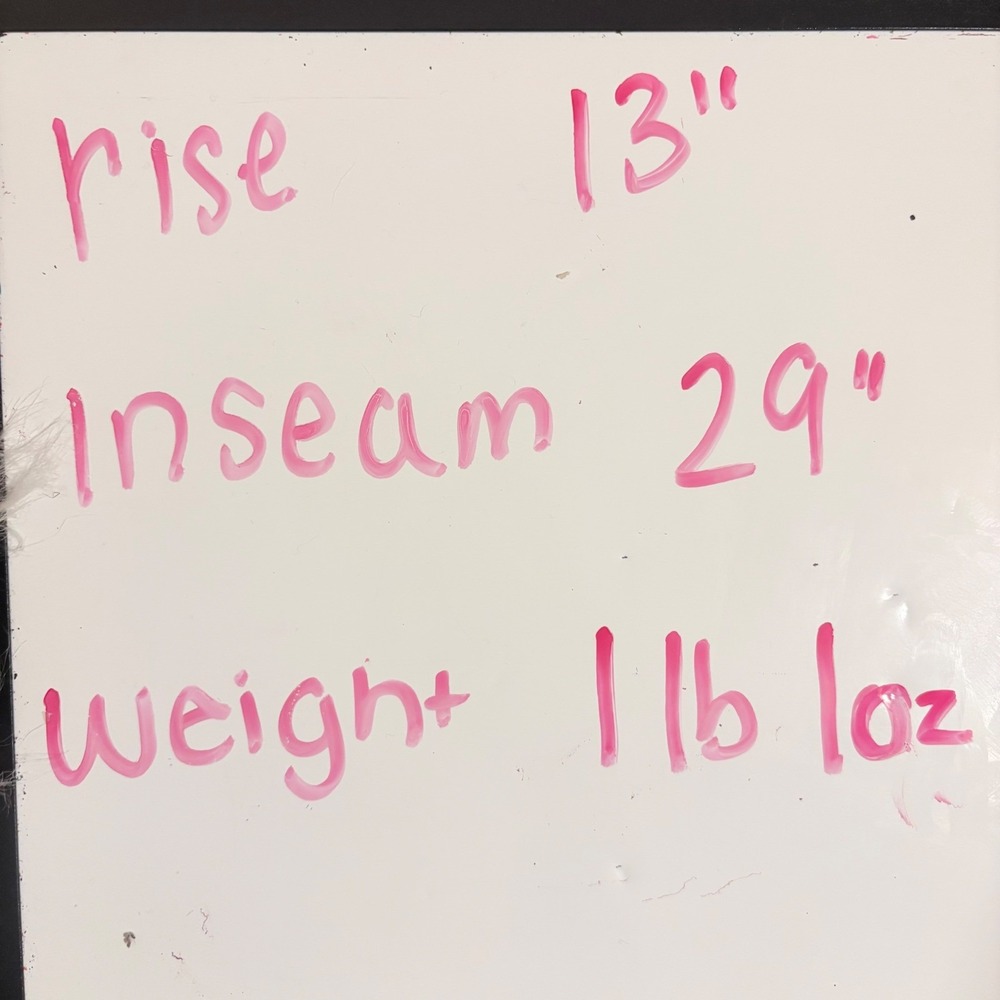 rise 13"
Inseam 29"
weight 1 lb 1oz